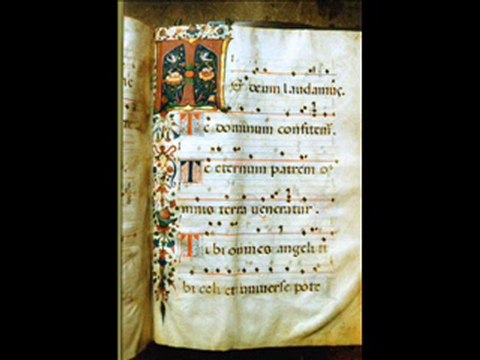 Te deum laudamus.
Te dominum confitem.
Te eternum patrem o
mnis terra veneratur.
Tibi omnes angeli ti
bi celi et universe pote